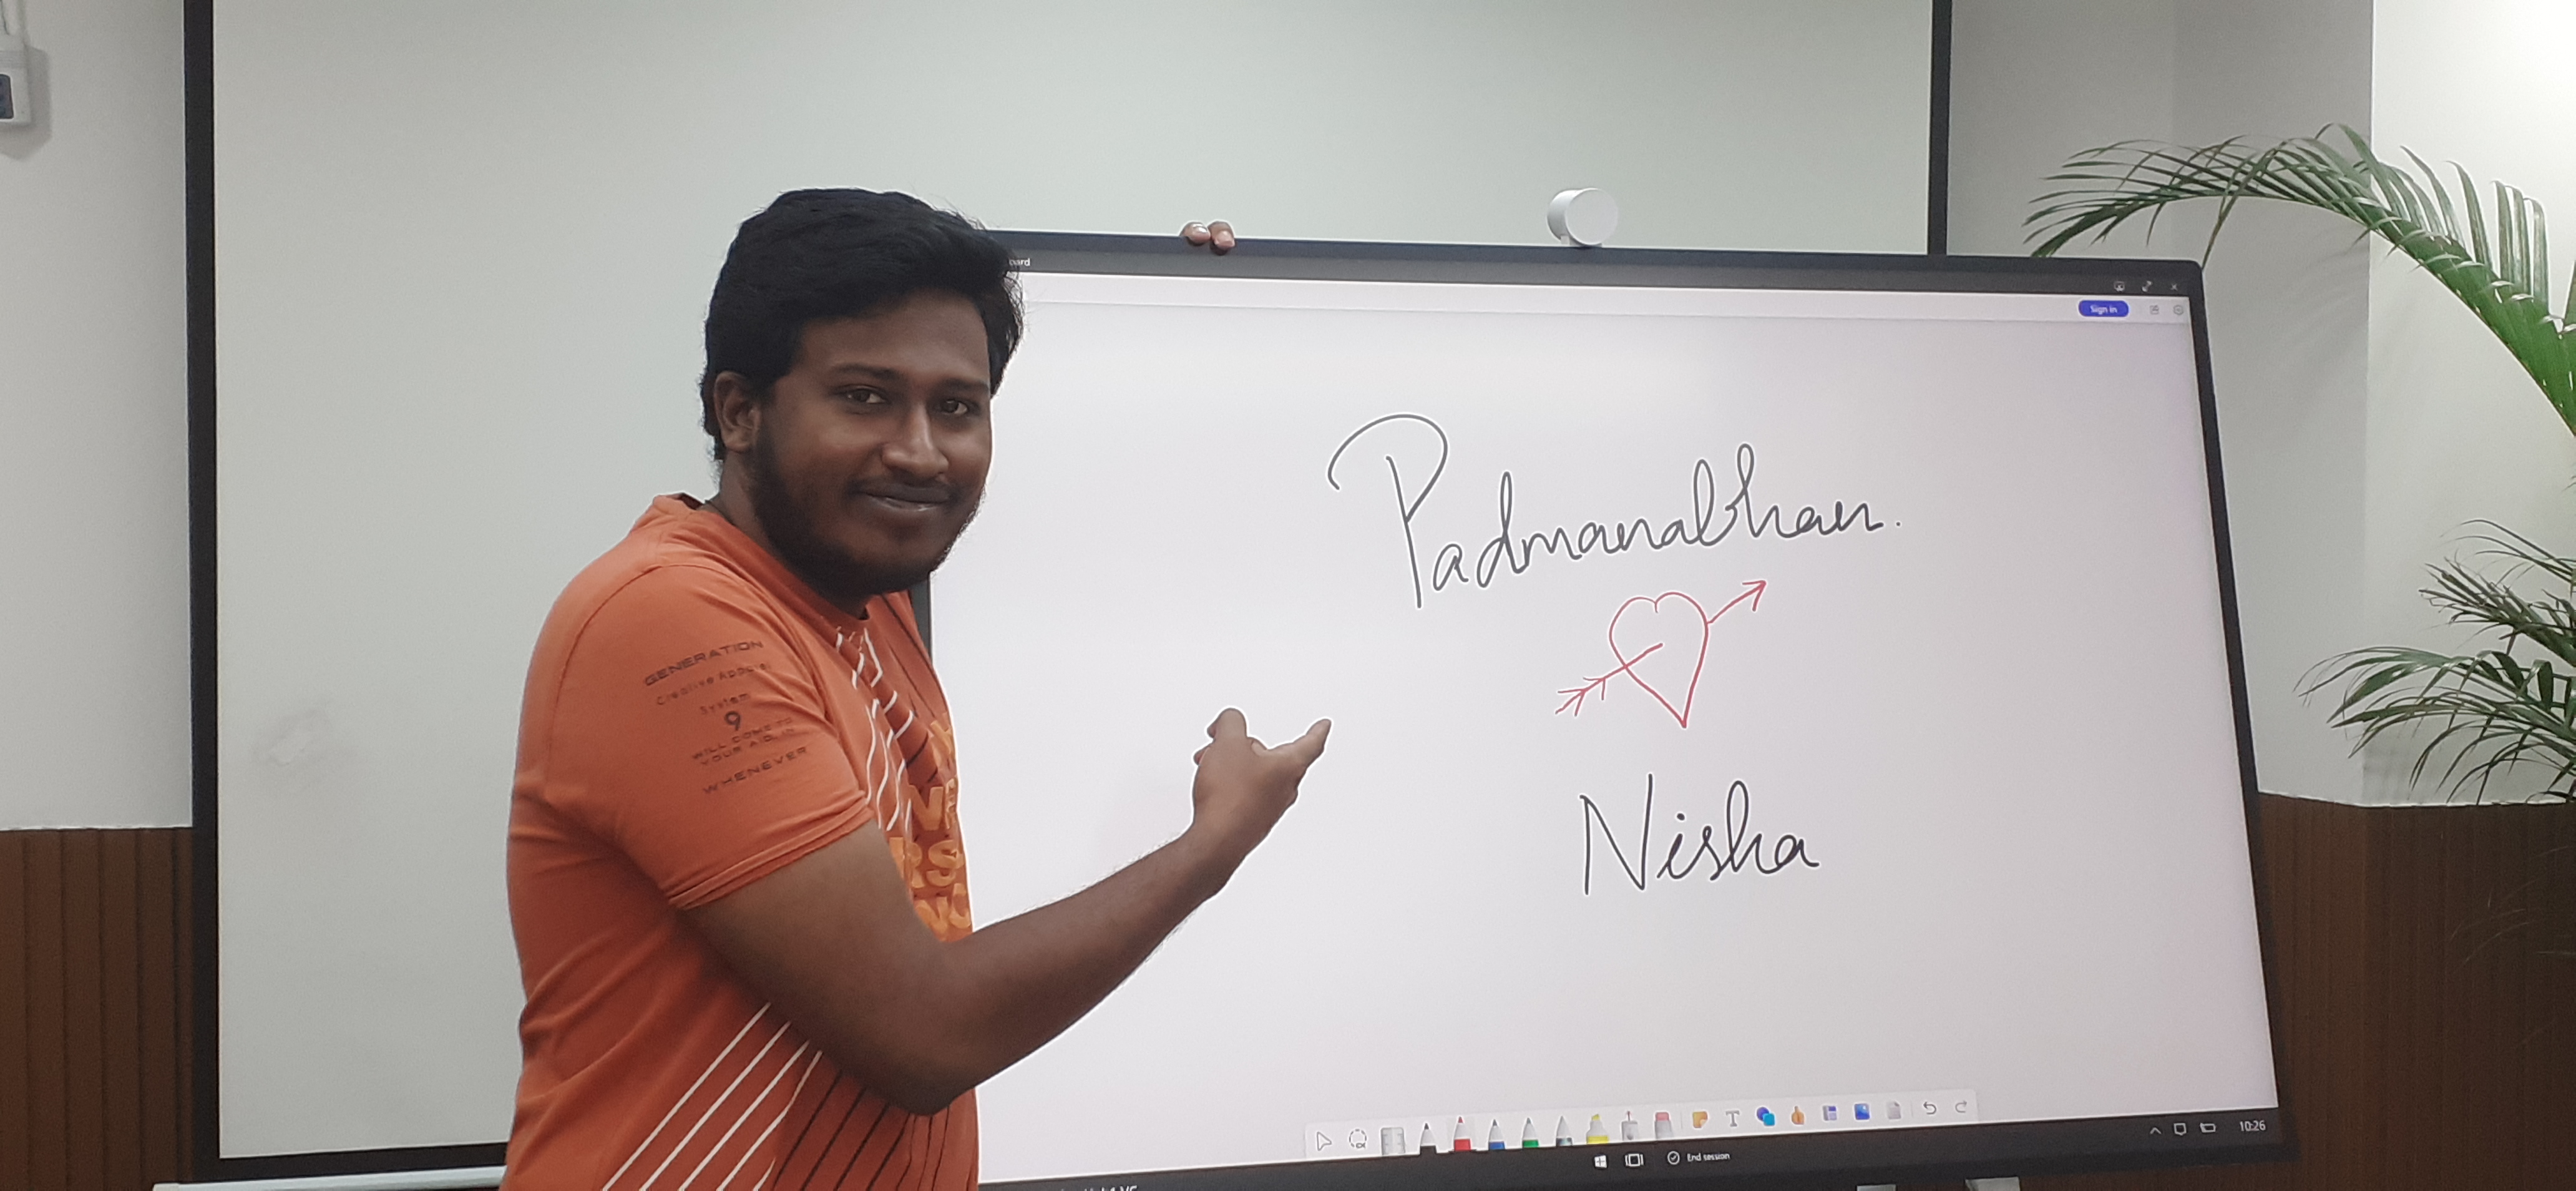 board
Sign in
Padmanabhan.
Nisha
GENERATION
Creative Apparel
System
9
WILL COME TO
YOUR AID, IN
WHENEVER
10:26
End session